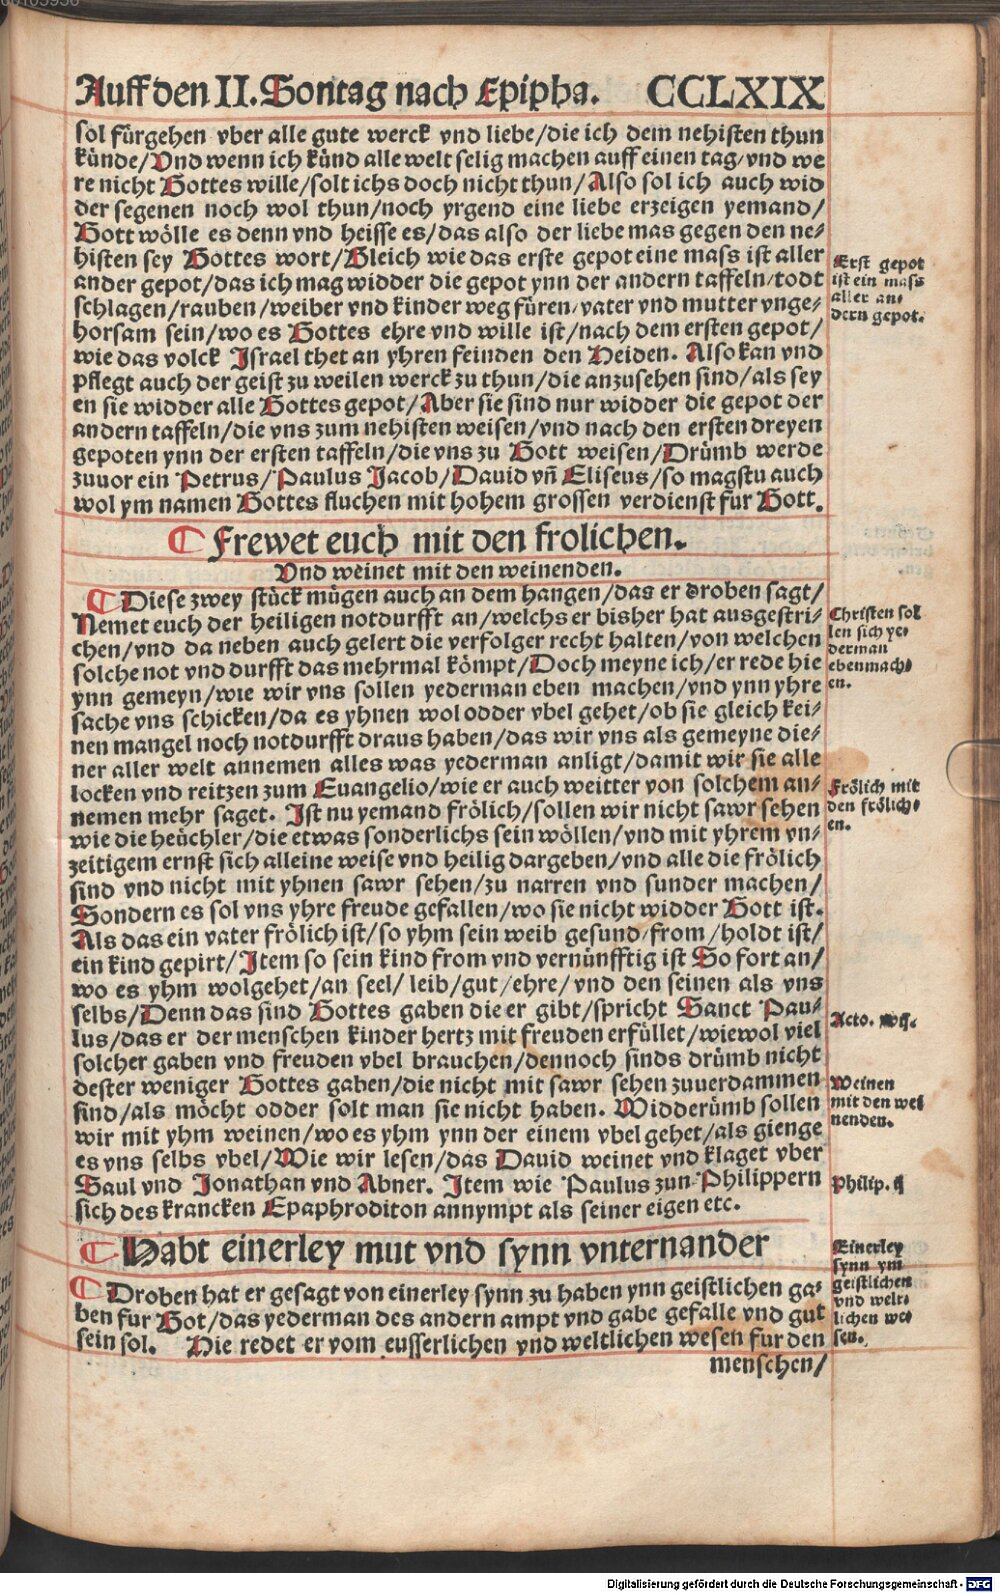 Auff den II. Sontag nach Epipha. CCLXIX
sol fürgehen vber alle gute werck vnd liebe/die ich dem nehisten thun
künde/Vnd wenn ich künd alle welt selig machen auff einen tag/vnd we
re nicht Gottes wille/solt ichs doch nicht thun/Also sol ich auch wid
der segenen noch wol thun/noch yrgend eine liebe erzeigen yemand/
Gott wölle es denn vnd heisse es/das also der liebe mas gegen den ne/
histen sey Gottes wort/Gleich wie das erste gepot eine mass ist aller
ander gepot/das ich mag widder die gepot ynn der andern taffeln/todt
schlagen/rauben/weiber vnd kinder weg füren/vater vnd mutter vnge/
horsam sein/wo es Gottes ehre vnd wille ist/nach dem ersten gepot/
wie das volck Israel thet an yhren feinden den Heiden. Also kan vnd
pflegt auch der geist zu weilen werck zu thun/die anzusehen sind/als sey
en sie widder alle Gottes gepot/Aber sie sind nur widder die gepot der
andern taffeln/die vns zum nehisten weisen/vnd nach den ersten dreyen
gepoten ynn der ersten taffeln/die vns zu Gott weisen/Drümb werde
zuuor ein Petrus/Paulus Jacob/Dauid vñ Eliseus/so magstu auch
wol ym namen Gottes fluchen mit hohem grossen verdienst fur Gott.
Erst gepot
ist ein mass
aller an/
dern gepot.
¶ Frewet euch mit den frolichen.
Vnd weinet mit den weinenden.
¶ Diese zwey stück mügen auch an dem hangen/das er droben sagt/
Nemet euch der heiligen notdurfft an/welchs er bisher hat ausgestri/
chen/vnd da neben auch gelert die verfolger recht halten/von welchen
solche not vnd durfft das mehrmal kömpt/Doch meyne ich/er rede hie
ynn gemeyn/wie wir vns sollen yederman eben machen/vnd ynn yhre
sache vns schicken/da es yhnen wol odder vbel gehet/ob sie gleich kei/
nen mangel noch notdurfft draus haben/das wir vns als gemeyne die/
ner aller welt annemen alles was yederman anligt/damit wir sie alle
locken vnd reitzen zum Euangelio/wie er auch weitter von solchem an/
nemen mehr saget. Ist nu yemand frölich/sollen wir nicht sawr sehen
wie die heüchler/die etwas sonderlichs sein wöllen/vnd mit yhrem vn/
zeitigem ernst sich alleine weise vnd heilig dargeben/vnd alle die frölich
sind vnd nicht mit yhnen sawr sehen/zu narren vnd sunder machen/
Sondern es sol vns yhre freude gefallen/wo sie nicht widder Gott ist.
Als das ein vater frölich ist/so yhm sein weib gesund/from/holdt ist/
ein kind gepirt/Item so sein kind from vnd vernünfftig ist So fort an/
wo es yhm wolgehet/an seel/leib/gut/ehre/vnd den seinen als vns
selbs/Denn das sind Gottes gaben die er gibt/spricht Sanct Pau/
lus/das er der menschen kinder hertz mit freuden erfüllet/wiewol viel
solcher gaben vnd freuden vbel brauchen/dennoch sinds drümb nicht
dester weniger Gottes gaben/die nicht mit sawr sehen zuuerdammen
sind/als möcht odder solt man sie nicht haben. Widderümb sollen
wir mit yhm weinen/wo es yhm ynn der einem vbel gehet/als gienge
es vns selbs vbel/Wie wir lesen/das Dauid weinet vnd klaget vber
Saul vnd Jonathan vnd Abner. Item wie Paulus zun Philippern
sich des krancken Epaphroditon annympt als seiner eigen etc.
Christen sol
len sich ye/
derman
ebenmach/
en.
Frölich mit
den frölich/
en.
Acto.
Weinen
mit den wei
nenden.
Philip. ij
¶ Habt einerley mut vnd synn vnternander
¶ Droben hat er gesagt von einerley synn zu haben ynn geistlichen ga/
ben fur Got/das yederman des andern ampt vnd gabe gefalle vnd gut
sein sol. Hie redet er vom eusserlichen vnd weltlichen wesen fur den
menschen/
Einerley
synn ym
geistlichen
vnd welt/
lichen we/
sen.
Digitalisierung gefördert durch die Deutsche Forschungsgemeinschaft - DFG